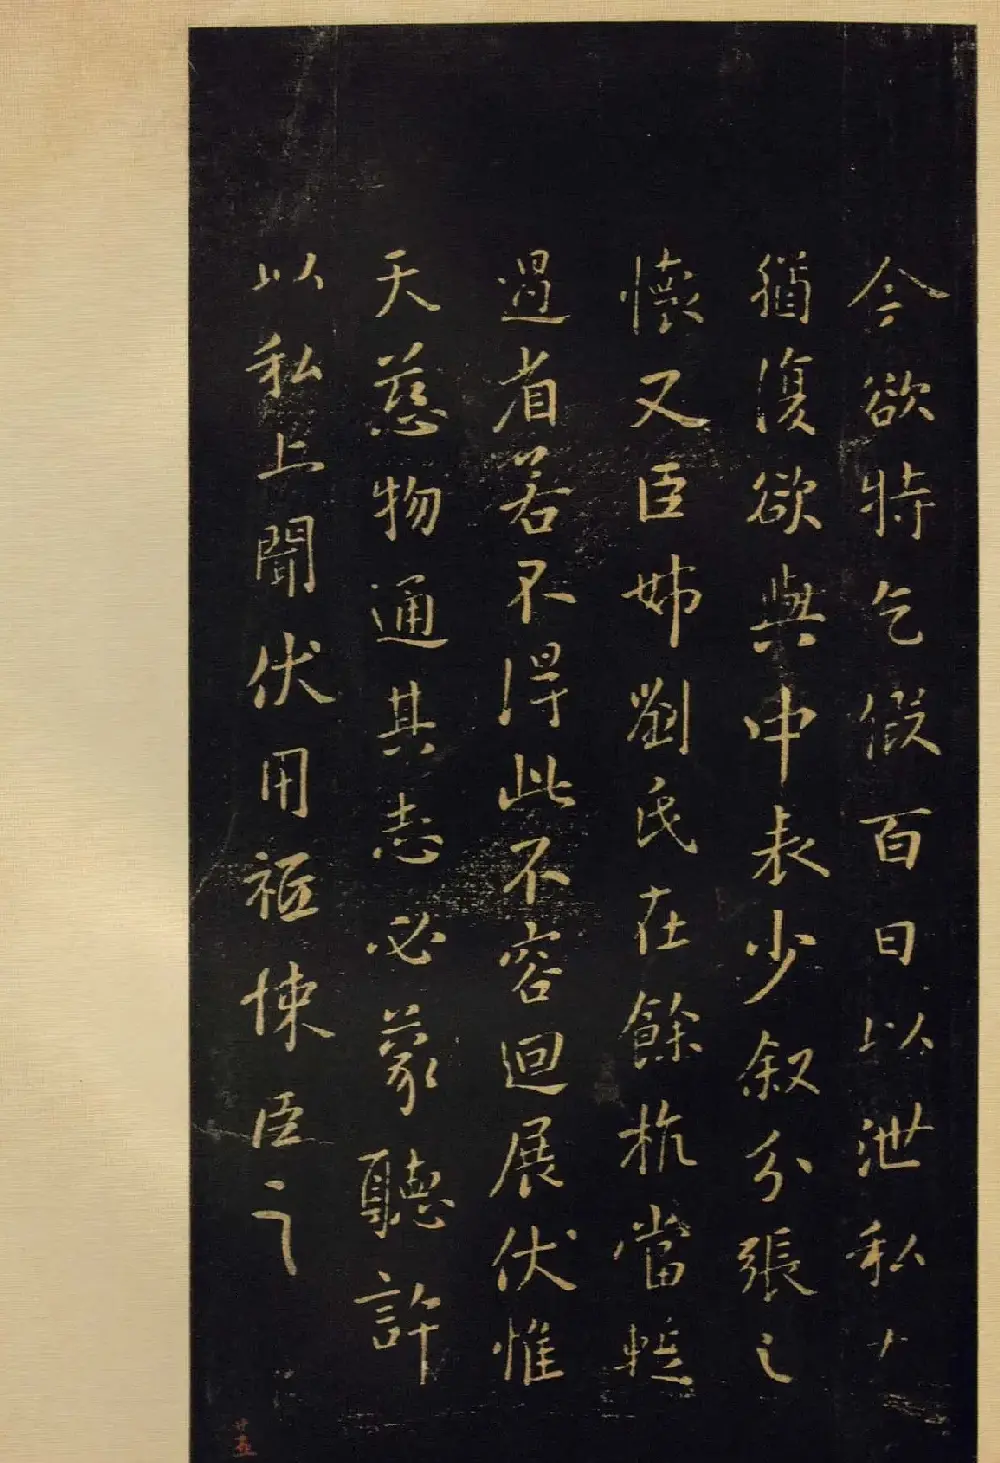 今欲特乞假百日以泄私
猶復欲與中表少叙分張之
懷又臣姊劉氏在餘杭當蹔
過省若不得此不容迴展伏惟
天慈物通其志必蒙聽許
以私上聞伏用祗悚臣之